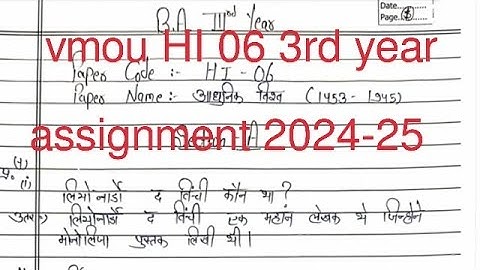 Date......
Page.
B.A IIIrd Year
vmou HI 06 3rd year
Paper Code :- HI - 06
Paper Name :- आधुनिक विश्व (1453 - 1945)
assignment 2024-25
Section - A
प्र०(1)
(i) लियोनार्डो द विंची कौन था ?
उत्तर:- लियोनार्डो द विंची एक महान लेखक थे जिन्होंने
मोनोलिसा पुस्तक लिखी थी।